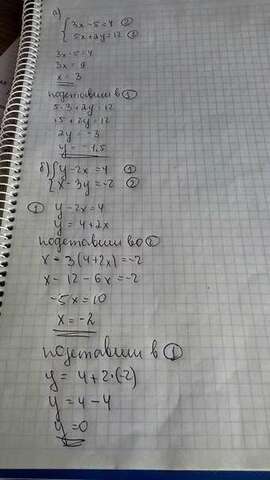 а)
{3x-5=4 ②
5x+2y=12 ①
3x-5=4
3x=9
x=3
подставим в ①
5·3+2y=12
15+2y=12
2y=-3
y=-1,5
б) {y-2x=4 ①
x-3y=-2 ②
① y-2x=4
y=4+2x
подставим во ②
x-3(4+2x)=-2
x-12-6x=-2
-5x=10
x=-2
подставим в ①
y=4+2·(-2)
y=4-4
y=0